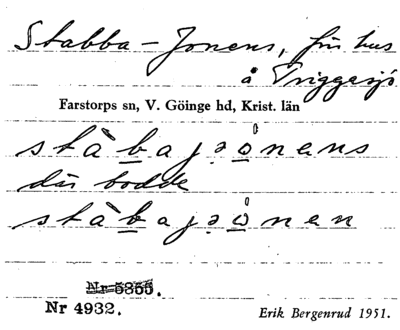 Stabba-Jonens, frn hus
å Triggasjö
Farstorps sn, V. Göinge hd, Krist. län
stàbajɔonens
där bodde
stàbajɔonen
Nr 5855.
Nr 4932.
Erik Bergenrud 1951.